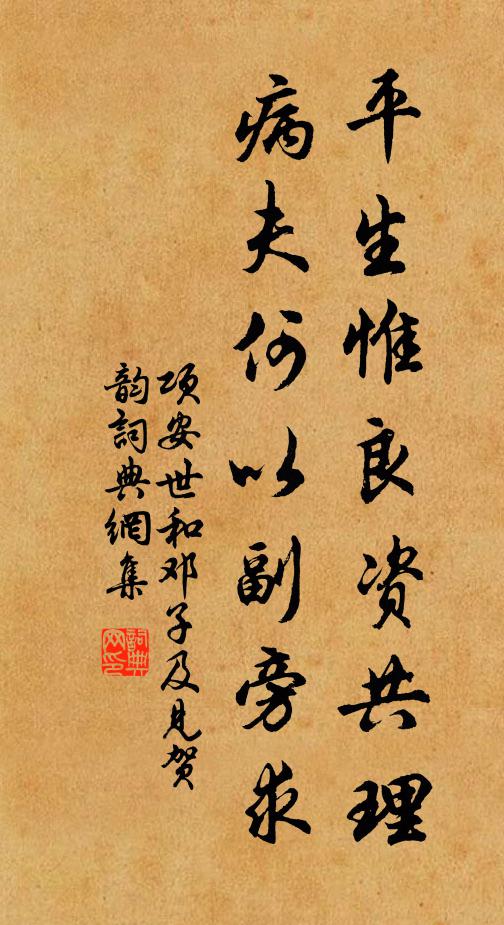 平生惟良资共理
病夫何以副旁求
项安世和邓子及见贺
韵词典網集
詞典网印